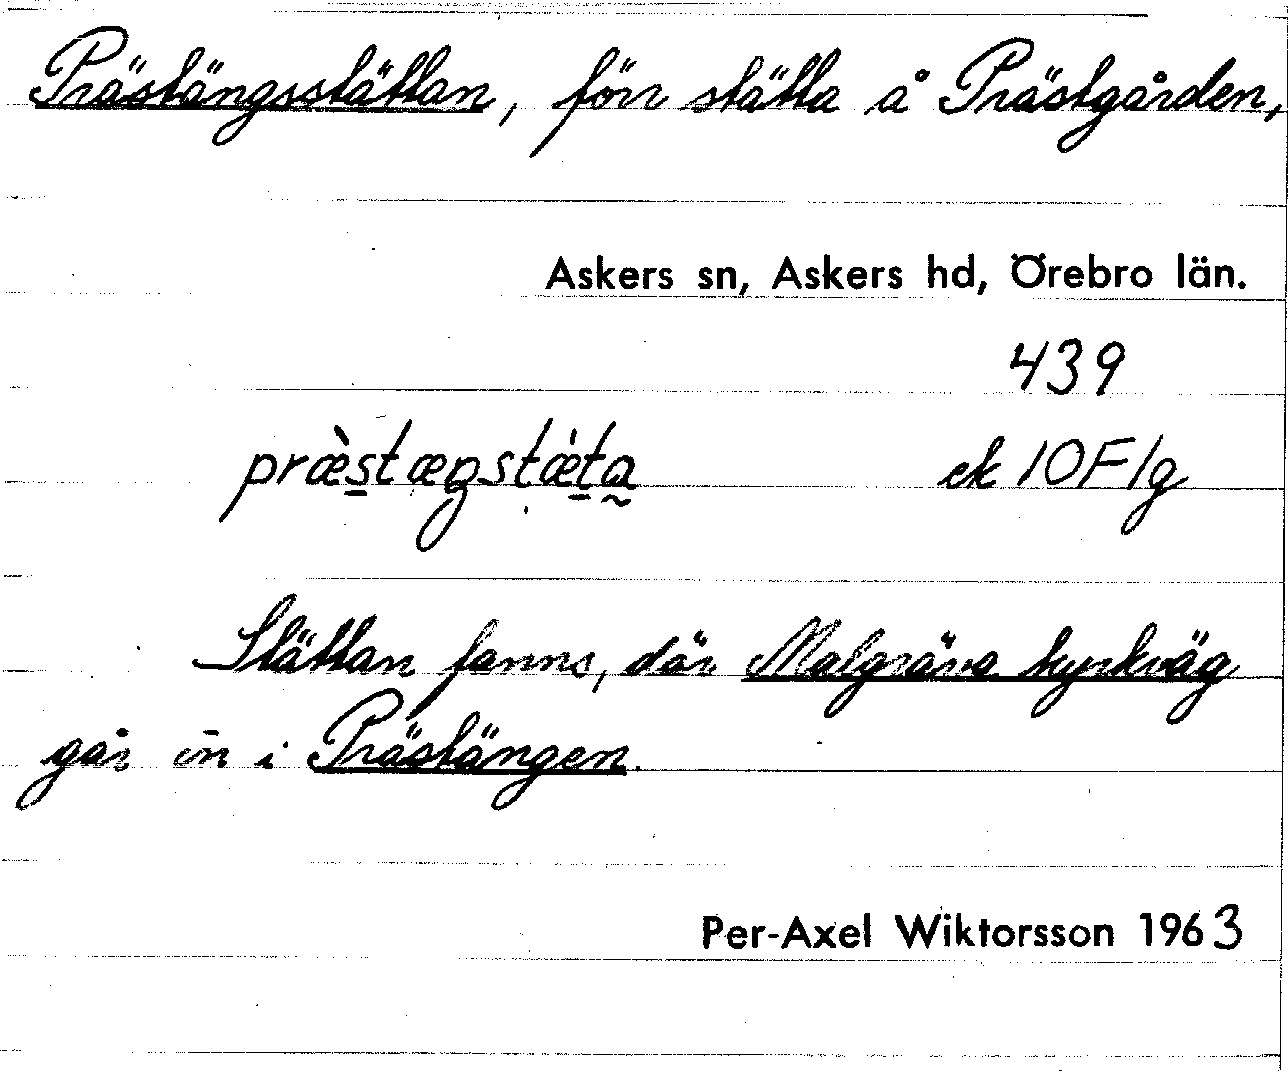 Prästängsstättan, förr stätta å Prästgården,
Askers sn, Askers hd, Örebro län.
439
præ̀stæŋstæ̀ta ek 10F1g
Stättan fanns, där Malgräva kyrkväg
går in i Prästängen.
Per-Axel Wiktorsson 1963